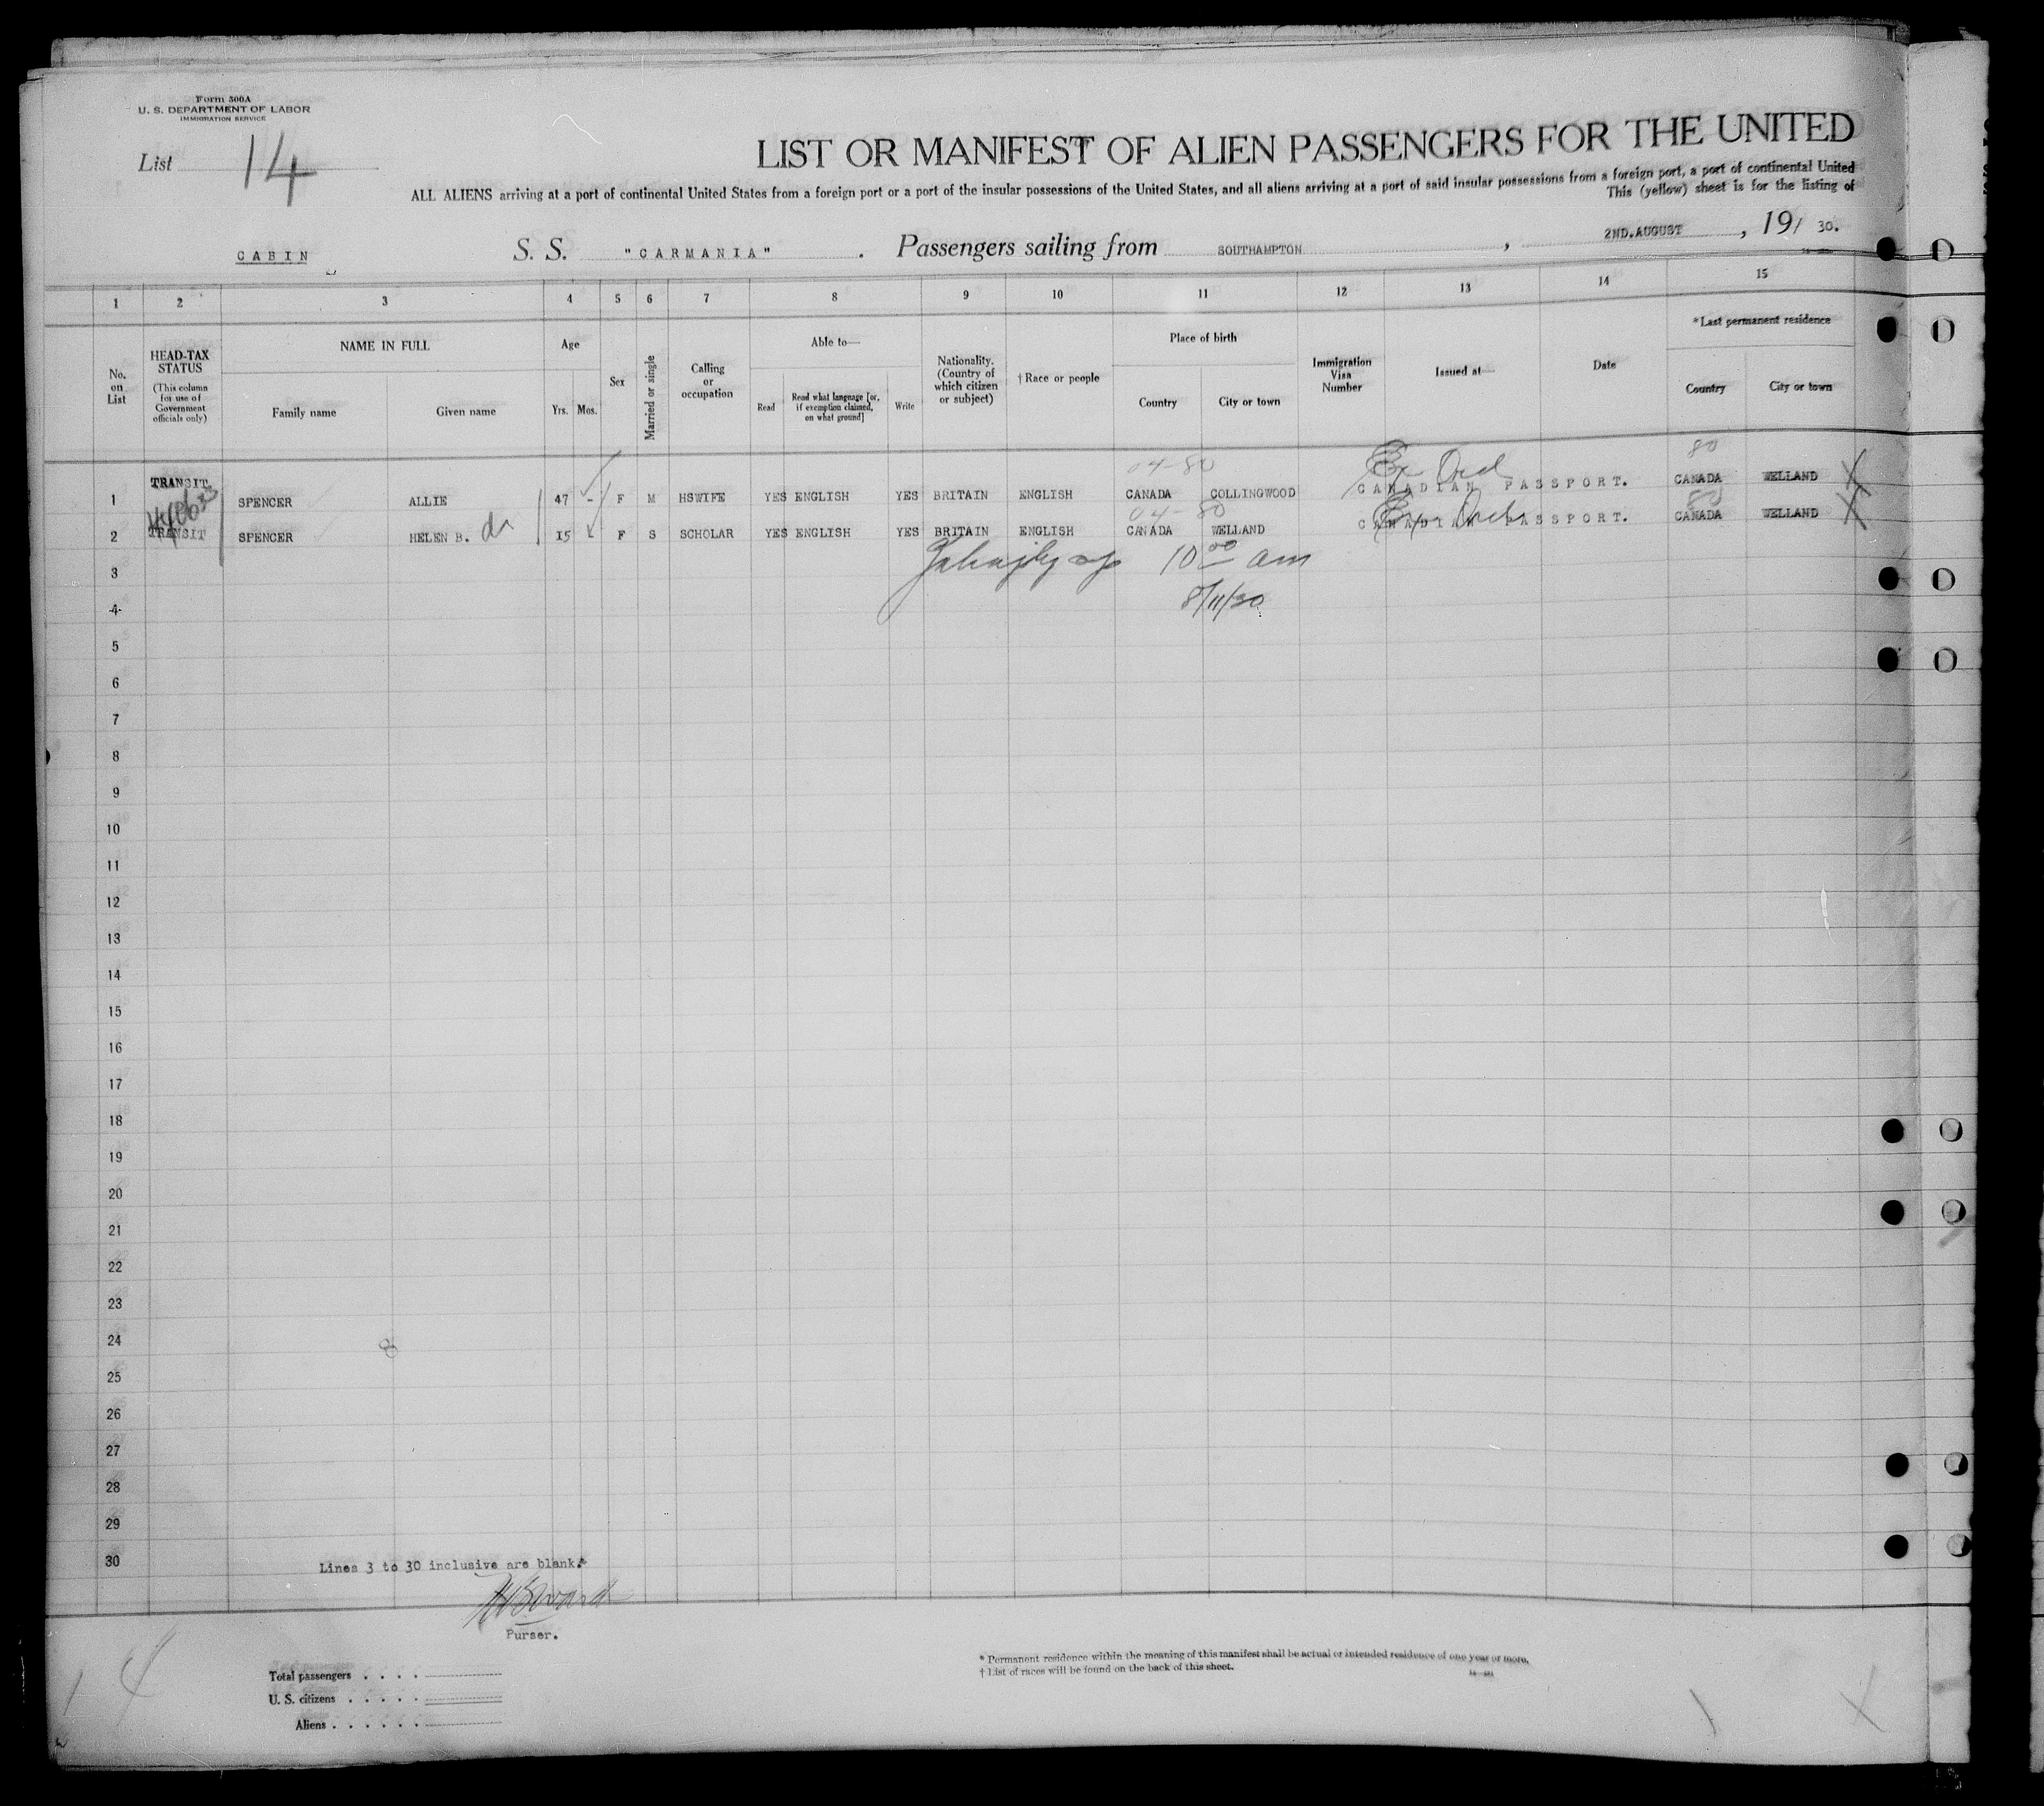 Form 500A
U. S. DEPARTMENT OF LABOR
IMMIGRATION SERVICE
List 14
LIST OR MANIFEST OF ALIEN PASSENGERS FOR THE UNITED
ALL ALIENS arriving at a port of continental United States from a foreign port or a port of the insular possessions of the United States, and all aliens arriving at a port of said insular possessions from a foreign port, a port of continental United
This (yellow) sheet is for the listing of
CABIN S. S. "CARMANIA" . Passengers sailing from SOUTHAMPTON , 2ND.AUGUST , 19/ 30.
1 2 3 4 5 6 7 8 9 10 11 12 13 14 15
No. on List
HEAD-TAX STATUS
(This column for use of Government officials only)
NAME IN FULL
Family name Given name
Age
Yrs. Mos.
Sex
Married or single
Calling or occupation
Able to—
Read Read what language [or, if exemption claimed, on what ground] Write
Nationality. (Country of which citizen or subject)
† Race or people
Place of birth
Country City or town
Immigration Visa Number
Issued at—
Date
*Last permanent residence
Country City or town
04-80 80
1 TRANSIT SPENCER ALLIE 47 - F M HSWIFE YES ENGLISH YES BRITAIN ENGLISH CANADA COLLINGWOOD CANADIAN PASSPORT. CANADA WELLAND
04-80
2 TRANSIT SPENCER HELEN B. 15 F S SCHOLAR YES ENGLISH YES BRITAIN ENGLISH CANADA WELLAND CANADIAN PASSPORT. CANADA WELLAND
10 00 am
3
8/11/30
4
5
6
7
8
9
10
11
12
13
14
15
16
17
18
19
20
21
22
23
24
25
26
27
28
29
30
Lines 3 to 30 inclusive are blank.
Purser.
Total passengers . . . .
U. S. citizens . . . . .
Aliens . . . . . .
* Permanent residence within the meaning of this manifest shall be actual or intended residence of one year or more.
† List of races will be found on the back of this sheet.